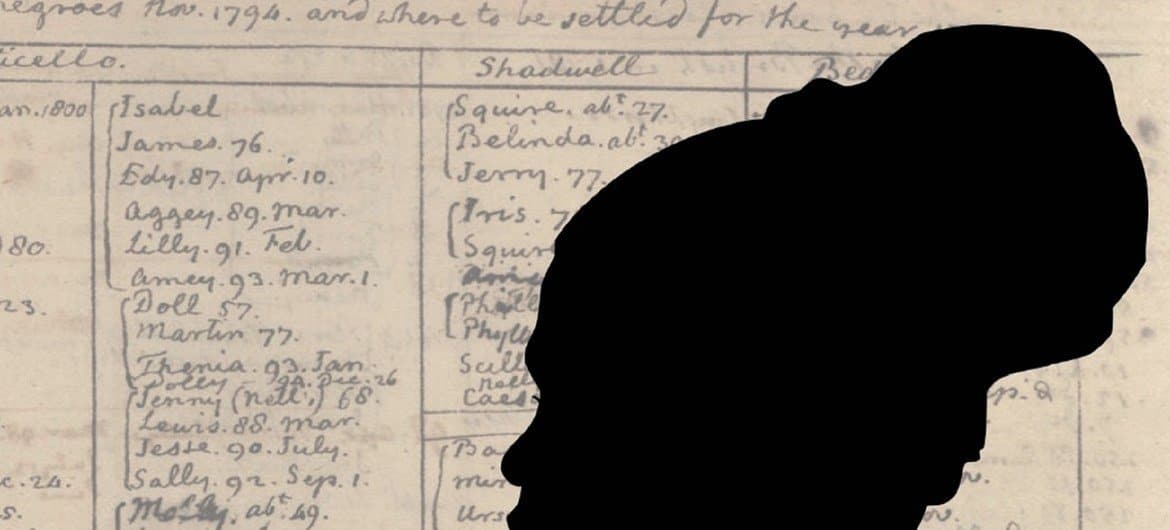 negroes Nov. 1794. and where to be settled for the year
icello.
Shadwell
Bed
an. 1800
Isabel
James. 76.
Edy. 87. Apr. 10.
Aggey. 89. Mar.
80.
Lilly. 91. Feb.
Amey. 93. Mar. 1.
23.
Doll 57.
Martin 77.
Thenia. 93. Jan
Dolly 94. Dec. 26
Jenny (Nell's) 68.
Lewis. 88. Mar.
Jesse. 90. July.
c. 24.
Sally. 92. Sep. 1.
s.
abt 49.
Squire. abt 27.
Belinda. abt 39
Jerry. 77.
Iris. 7
Squir
Phyll
Scill
Caes
Ba
Urs